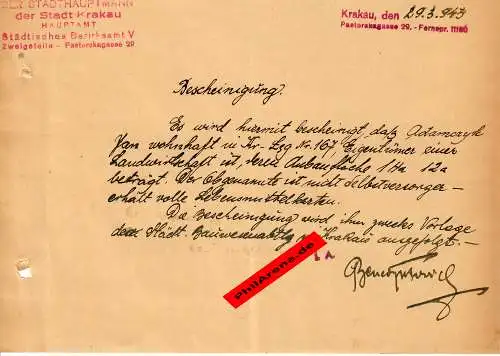 DER STADTHAUPTMANN
der Stadt Krakau
HAUPTAMT
Städtisches Bezirksamt V
Zweigstelle - Pastorskagasse 29
Krakau, den 29.3.1943
Pastorskagasse 29, - Fernspr.
Bescheinigung.
Es wird hiermit bescheinigt, daß Adamczyk
Jan wohnhaft in Kr- Lgg Nr. 167, Eigentümer einer
Landwirtschaft ist, deren Anbaufläche 1 Ha 12a
beträgt. Der Obgenannte ist nicht Selbstversorger -
erhält volle Lebensmittelkarten.
Da Bescheinigung wird ihm zwecks Vorlage
dem Städt. Krakau ausgefolgt. -
PhilArena.de